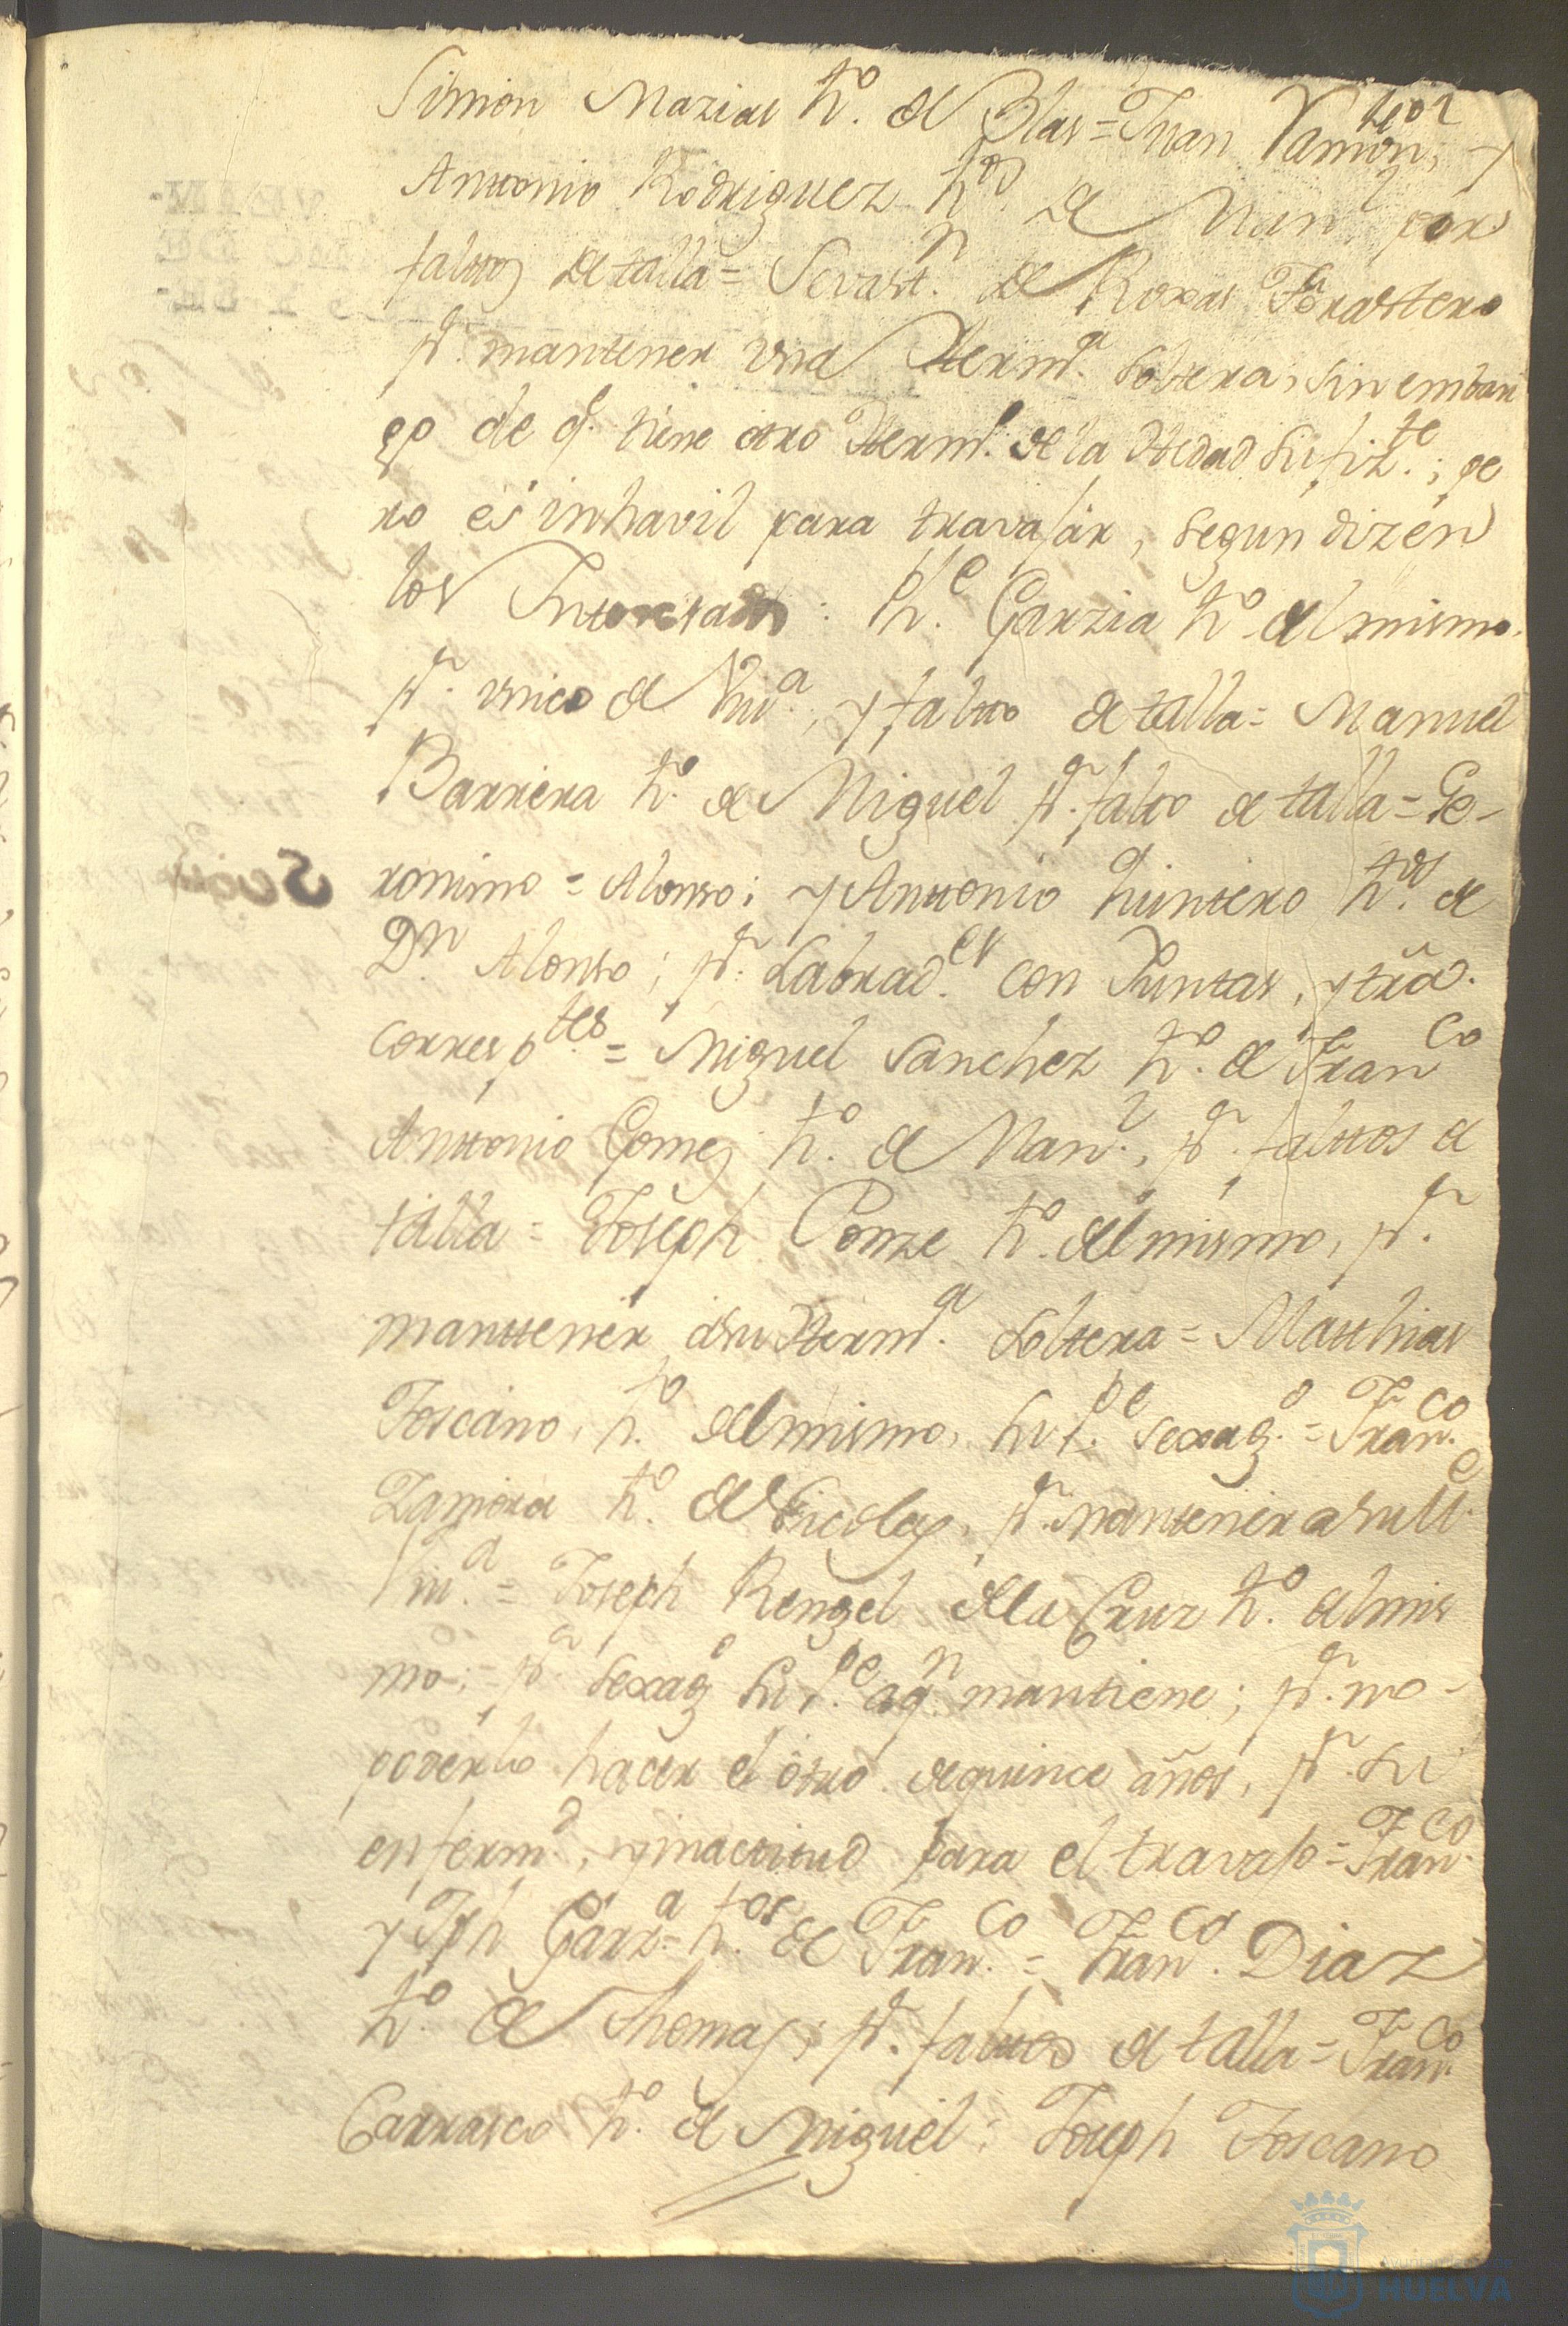 Simon Mazias hº. de Blas = Juan Ramon, y
Anttonio Rodriguez hos. de Manl. por
faltos de talla = Sevastn. de Roxas Forastero
pr. mantener una Hermª. soltera, sin embar
go de q. tiene otro Hermº. de la Hedad sufizte.; pe
ro es inhavil para travajar, segun dizen
los Interesados: Phe. Garzia hº. del mismo.
pr. unico de Viuª., y faltto de talla = Manuel
Barrera hº. de Miguel pr. falto de talla = Ge-
ronimo = Alonso; y Anttonio Quintero hos. de
Dn. Alonso; pr. Labrades. con Yuntas, y trãs.
correspttes. = Miguel Sanchez hº. de Franco
Anttonio Gomez hº. de Manl., pr. falttos de
talla = Joseph Ponze hº. del mismo, pr.
manttener á su Hermª. soltera = Matthias
Toscano, hº. del mismo, su pe. sexagº. = Franco.
Zamora hº. de Nicolas, pr. mantener a su Me.
Viuª. = Joseph Rengel de la Cruz hº. del mis
mo; = pr. sexagº su pe. a qn. mantiene; pr. no-
poderlo hacer el otro de quince años, pr. su
enfermd., y inacttitud para el travajo = Franco.
y Jph Garzª. hos. de Franco. = Franco. Diaz
hº. de Thomas; pr. falttos de talla = Franco.
Carrasco hº. de Miguel: Joseph Toscano
HUELVA